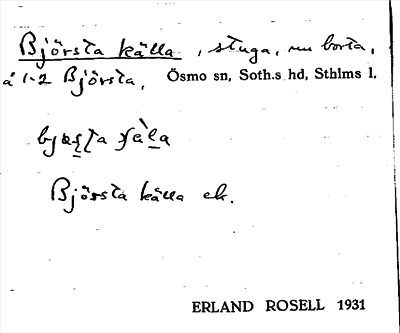 Björsta källa, stuga, nu borta,
å 1-2 Björsta, Ösmo sn, Soth.s hd, Sthlms l.
Björsta källa ek.
ERLAND ROSELL 1931